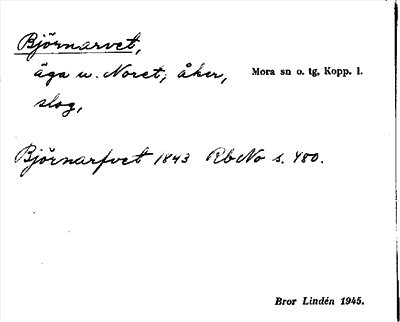 Björnarvet,
äga u. Noret; åker, Mora sn o. tg, Kopp. l.
slog,
Björnarfvet 1843 RbNo s. 480.
Bror Lindén 1945.